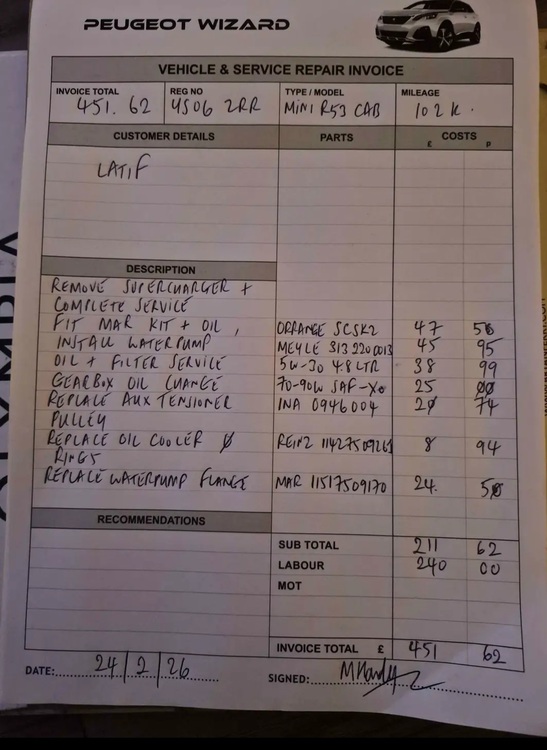 PEUGEOT WIZARD
VEHICLE & SERVICE REPAIR INVOICE
INVOICE TOTAL REG NO TYPE / MODEL MILEAGE
451.62 YS06 ZRR MINI R53 CAB 102K.
CUSTOMER DETAILS PARTS COSTS
£ P
LATIF
DESCRIPTION
REMOVE SUPERCHARGER +
COMPLETE SERVICE
FIT MAR KIT + OIL, ORRANGE SCSK2 47
INSTALL WATERPUMP MEYLE 313 220 0013 45 95
OIL + FILTER SERVICE 5W-30 4.8LTR 38 99
GEARBOX OIL CHANGE 70-90W SAF-XO 25 00
REPLACE AUX TENSIONER INA 0946004 20 74
PULLEY
REPLACE OIL COOLER REINZ 8 94
RINGS
REPLACE WATERPUMP FLANGE MAR 11517509170 24. 50
RECOMMENDATIONS
SUB TOTAL 211 62
LABOUR 240 00
MOT
INVOICE TOTAL £ 451 62
DATE: 24/2/26 SIGNED: